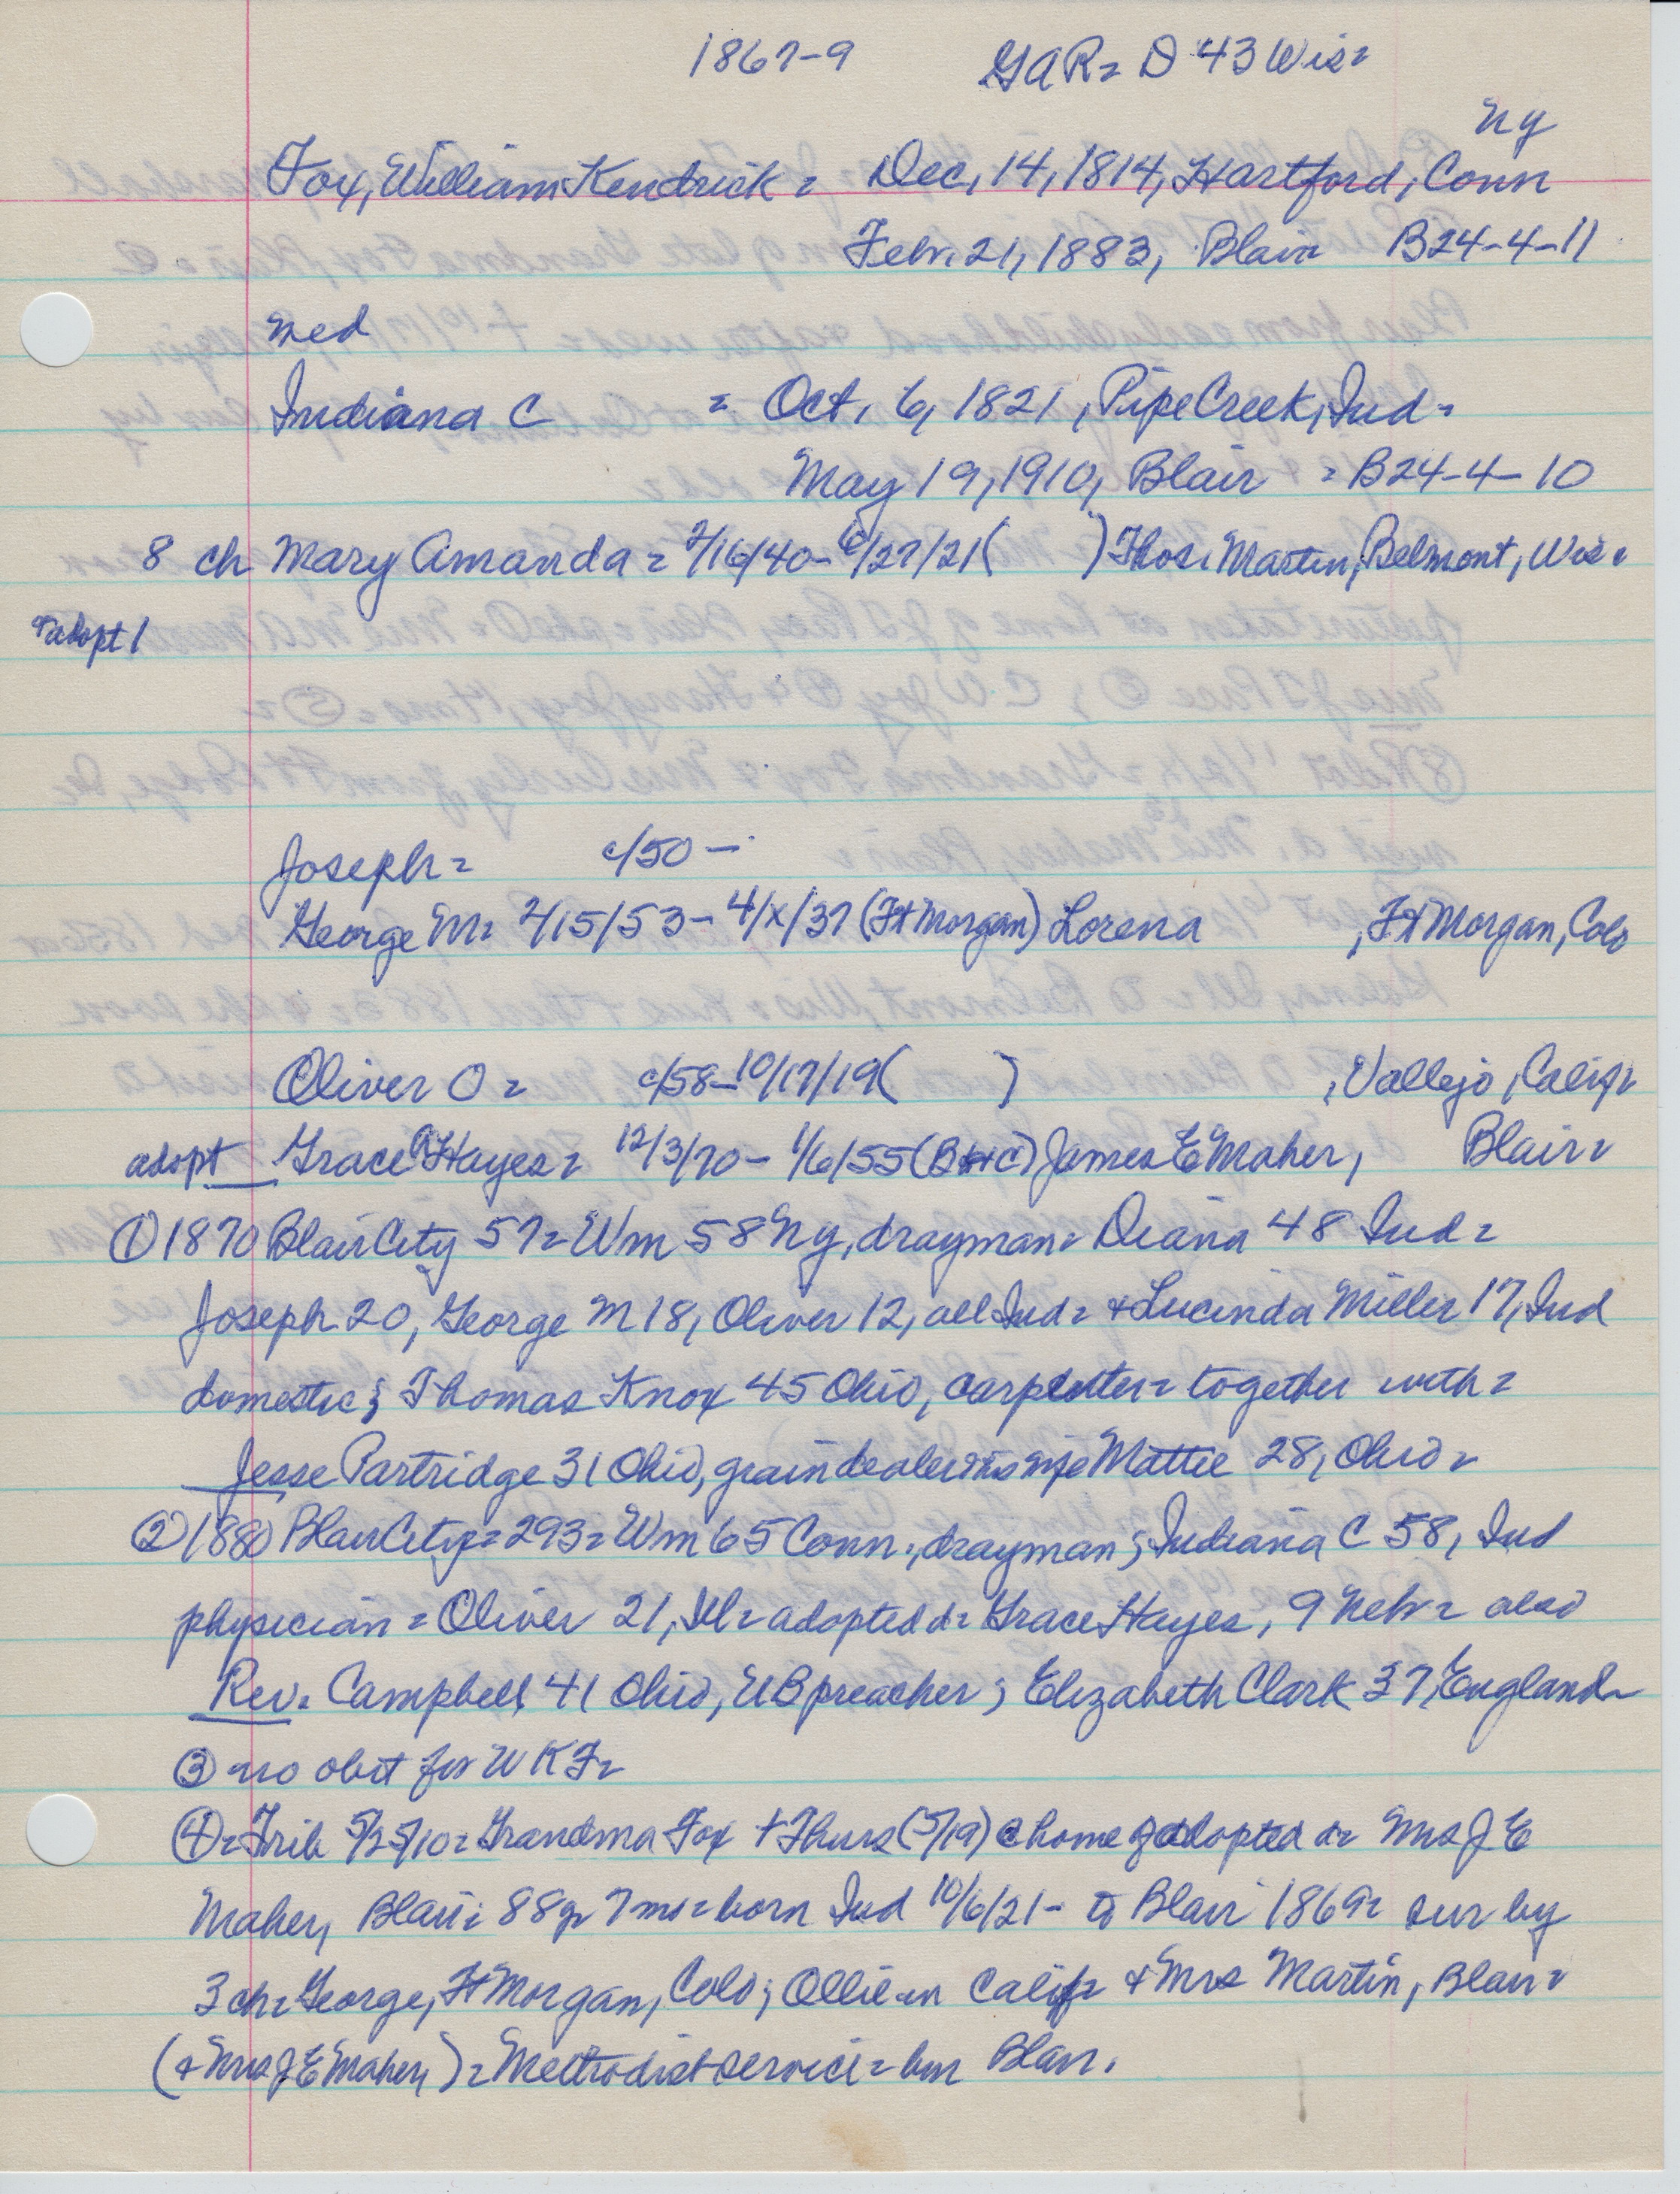 1867-9 GAR= D 43 Wis=
Ny
Fox, William Kendrick = Dec, 14, 1814, Hartford, Conn
Febr. 21, 1883, Blair B24-4-11
med
Indiana C = Oct, 6, 1821, Pipe Creek, Ind=
May 19, 1910, Blair = B24-4-10
8 ch Mary Amanda = 2/16/40-6/27/21 ( ) Thos. Martin, Belmont, Wis=
+adopt 1
Joseph = c/50 —
George M= 2/15/53 - 4/x/37 (Ft Morgan) Lorena , Ft Morgan, Colo
Oliver O = c/58-10/17/19 ( ) , Vallejo, Calif=
adopt Grace Hayes = 12/3/70 - 1/6/55 (B C) James E Maher, Blair=
① 1870 Blair City 57= Wm 58 Ny, drayman= Diana 48 Ind=
Joseph 20, George M 18, Oliver 12, all Ind= + Lucinda Miller 17, Ind
domestic; Thomas Knox 45 Ohio, carpenter= together with=
Jesse Partridge 31 Ohio, grain dealer= his wife Mattie 28, Ohio=
② 1880 Blair City= 293= Wm 65 Conn., drayman; Indiana C 58, Ind
physician = Oliver 21, Ill= adopted d= Grace Hayes, 9 Nebr= also
Rev. Campbell 41 Ohio, UB preacher; Elizabeth Clark 37, England=
③ no obit for WKF=
④= Trib 5/25/10= Grandma Fox + Thurs (5/19) @ home of adopted d= Mrs J E
Maher, Blair= 88y 7ms= born Ind 10/6/21 - to Blair 1869= sur by
3 ch= George, Ft Morgan, Colo; Ollie in Calif= + Mrs Martin, Blair=
(+ Mrs J E Maher,) = Methodist service= bur Blair.